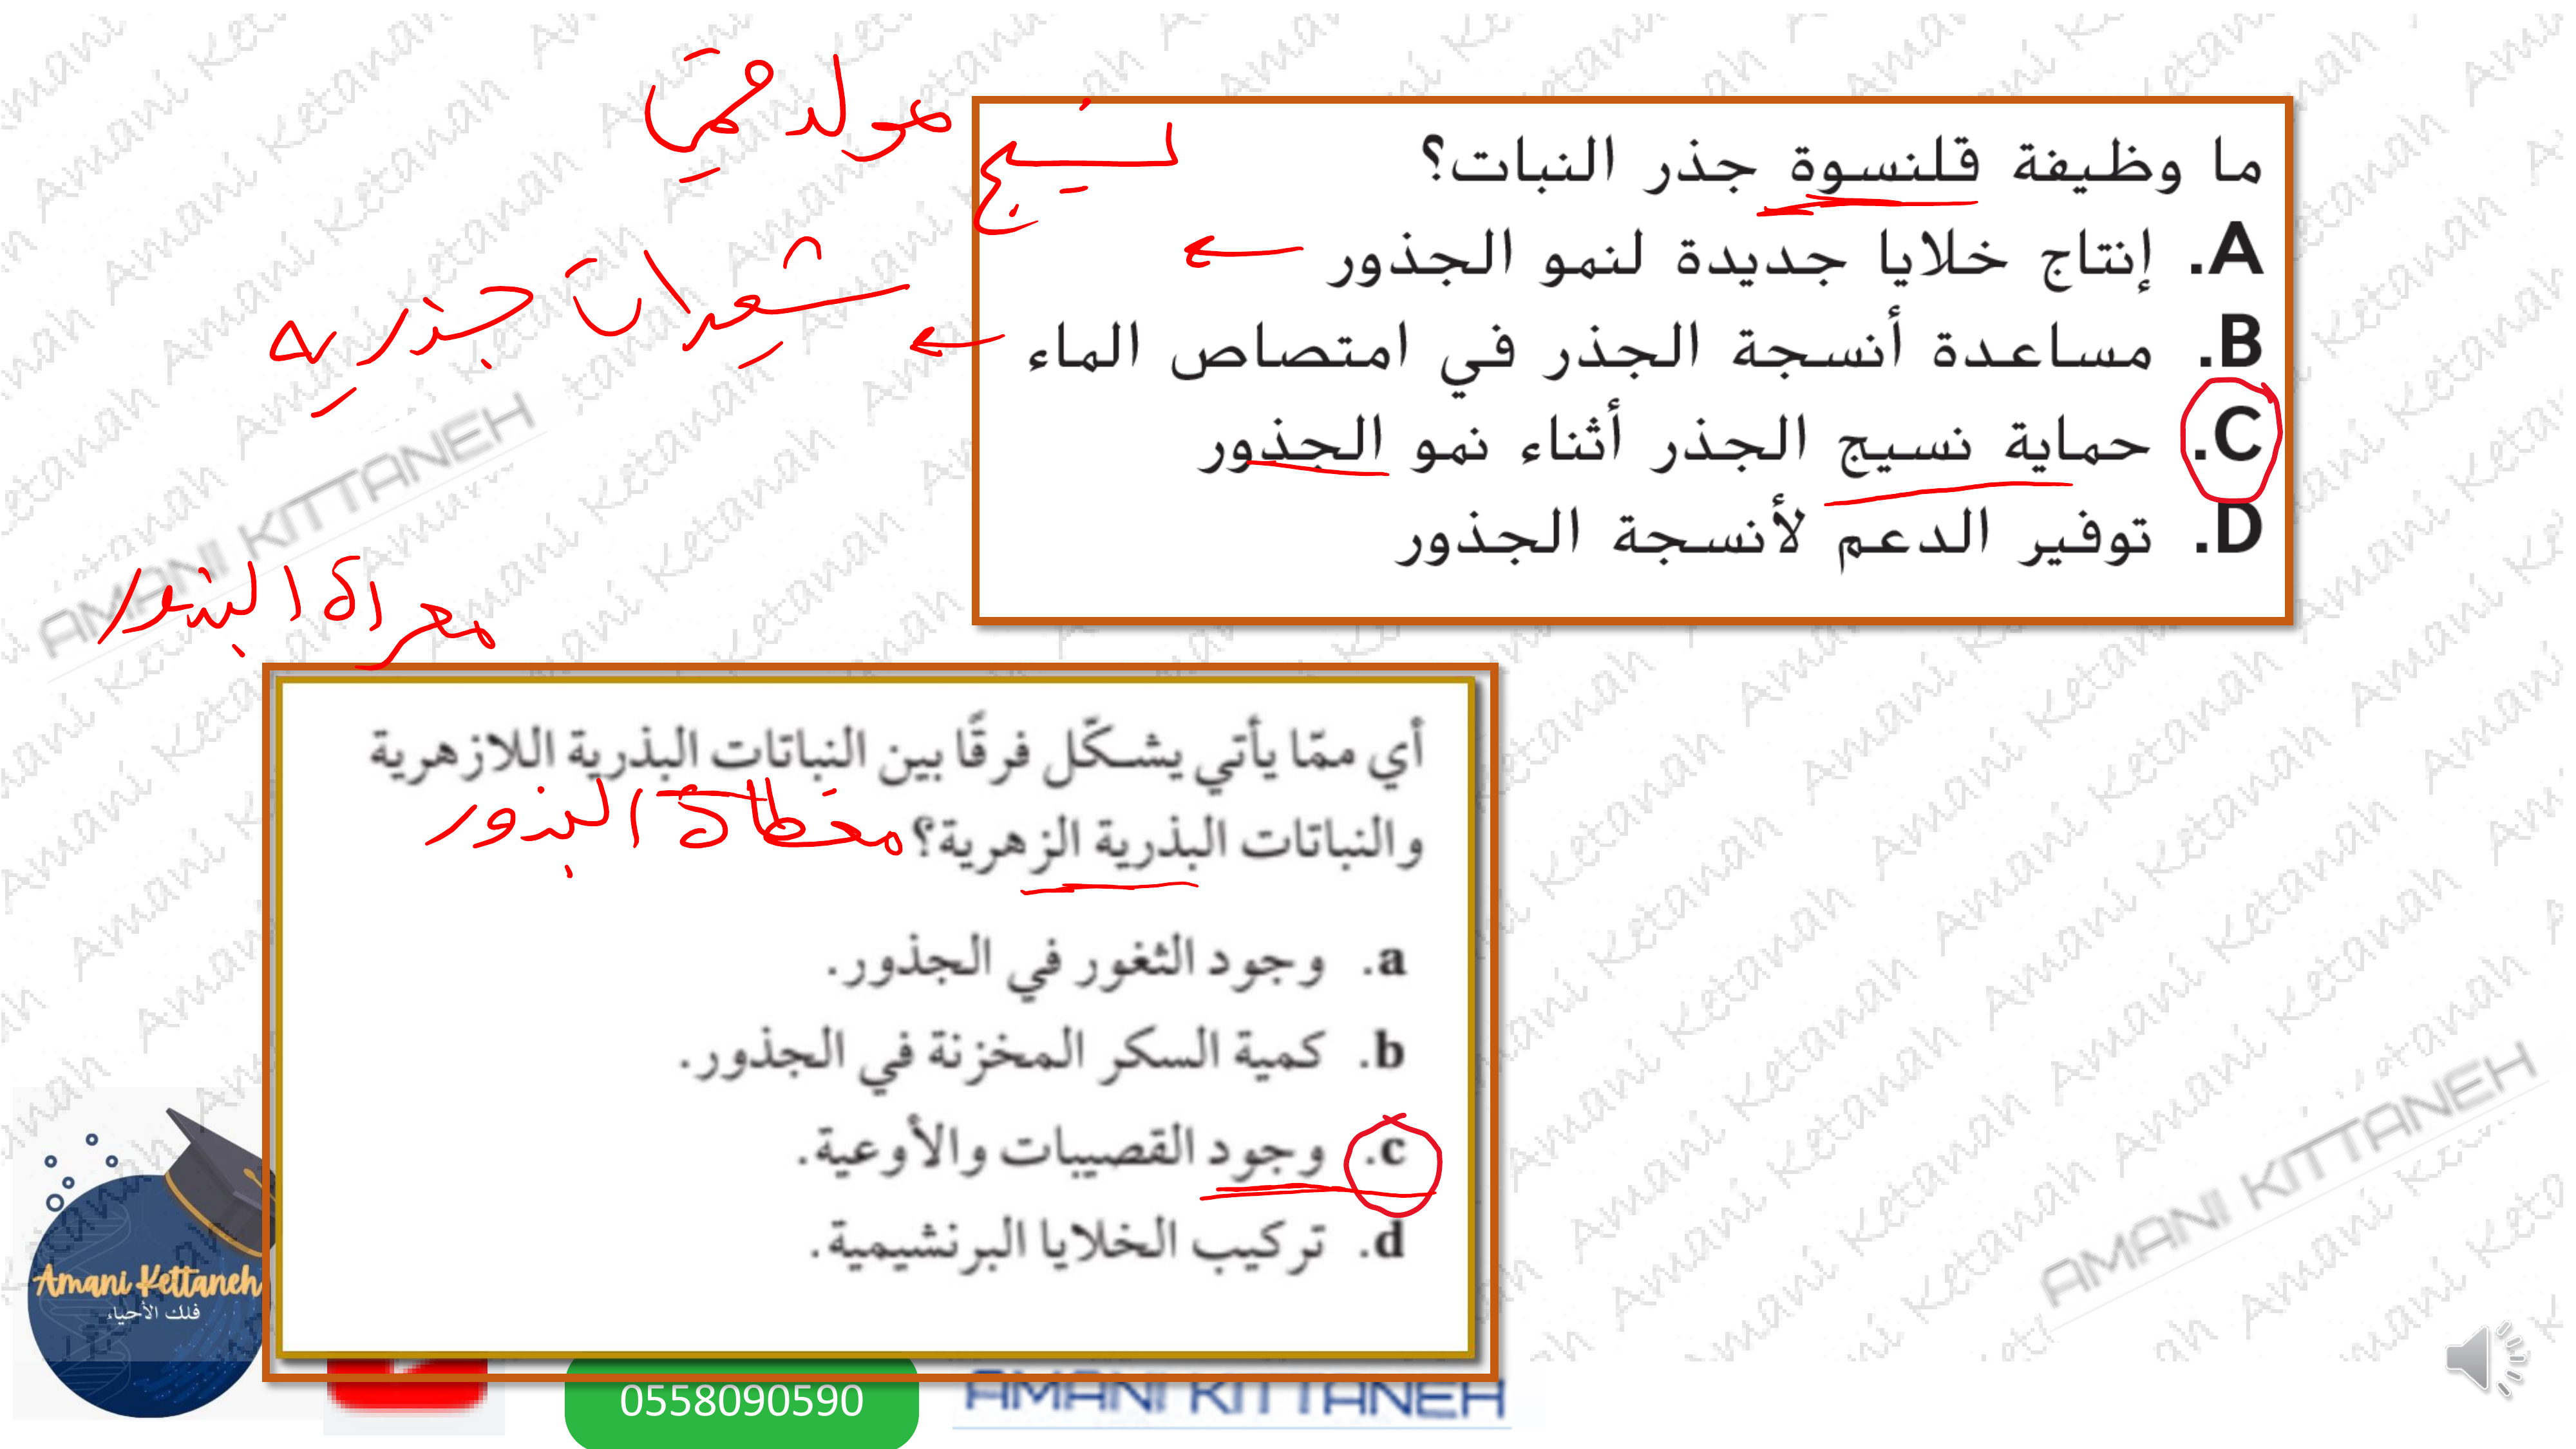 نسيج مولد قمي
ما وظيفة قلنسوة جذر النبات؟
A. إنتاج خلايا جديدة لنمو الجذور
شعيرات جذريه
B. مساعدة أنسجة الجذر في امتصاص الماء
C. حماية نسيج الجذر أثناء نمو الجذور
D. توفير الدعم لأنسجة الجذور
معراة البذور
أي ممّا يأتي يشكّل فرقًا بين النباتات البذرية اللازهرية
والنباتات البذرية الزهرية؟
مغطاة البذور
a. وجود الثغور في الجذور.
b. كمية السكر المخزنة في الجذور.
c. وجود القصيبات والأوعية.
d. تركيب الخلايا البرنشيمية.
Amani Kettaneh
فلك الأحياء
0558090590
AMANI KITTANEH
AMANI KITTANEH
AMANI KITTANEH
Amani Ketanah